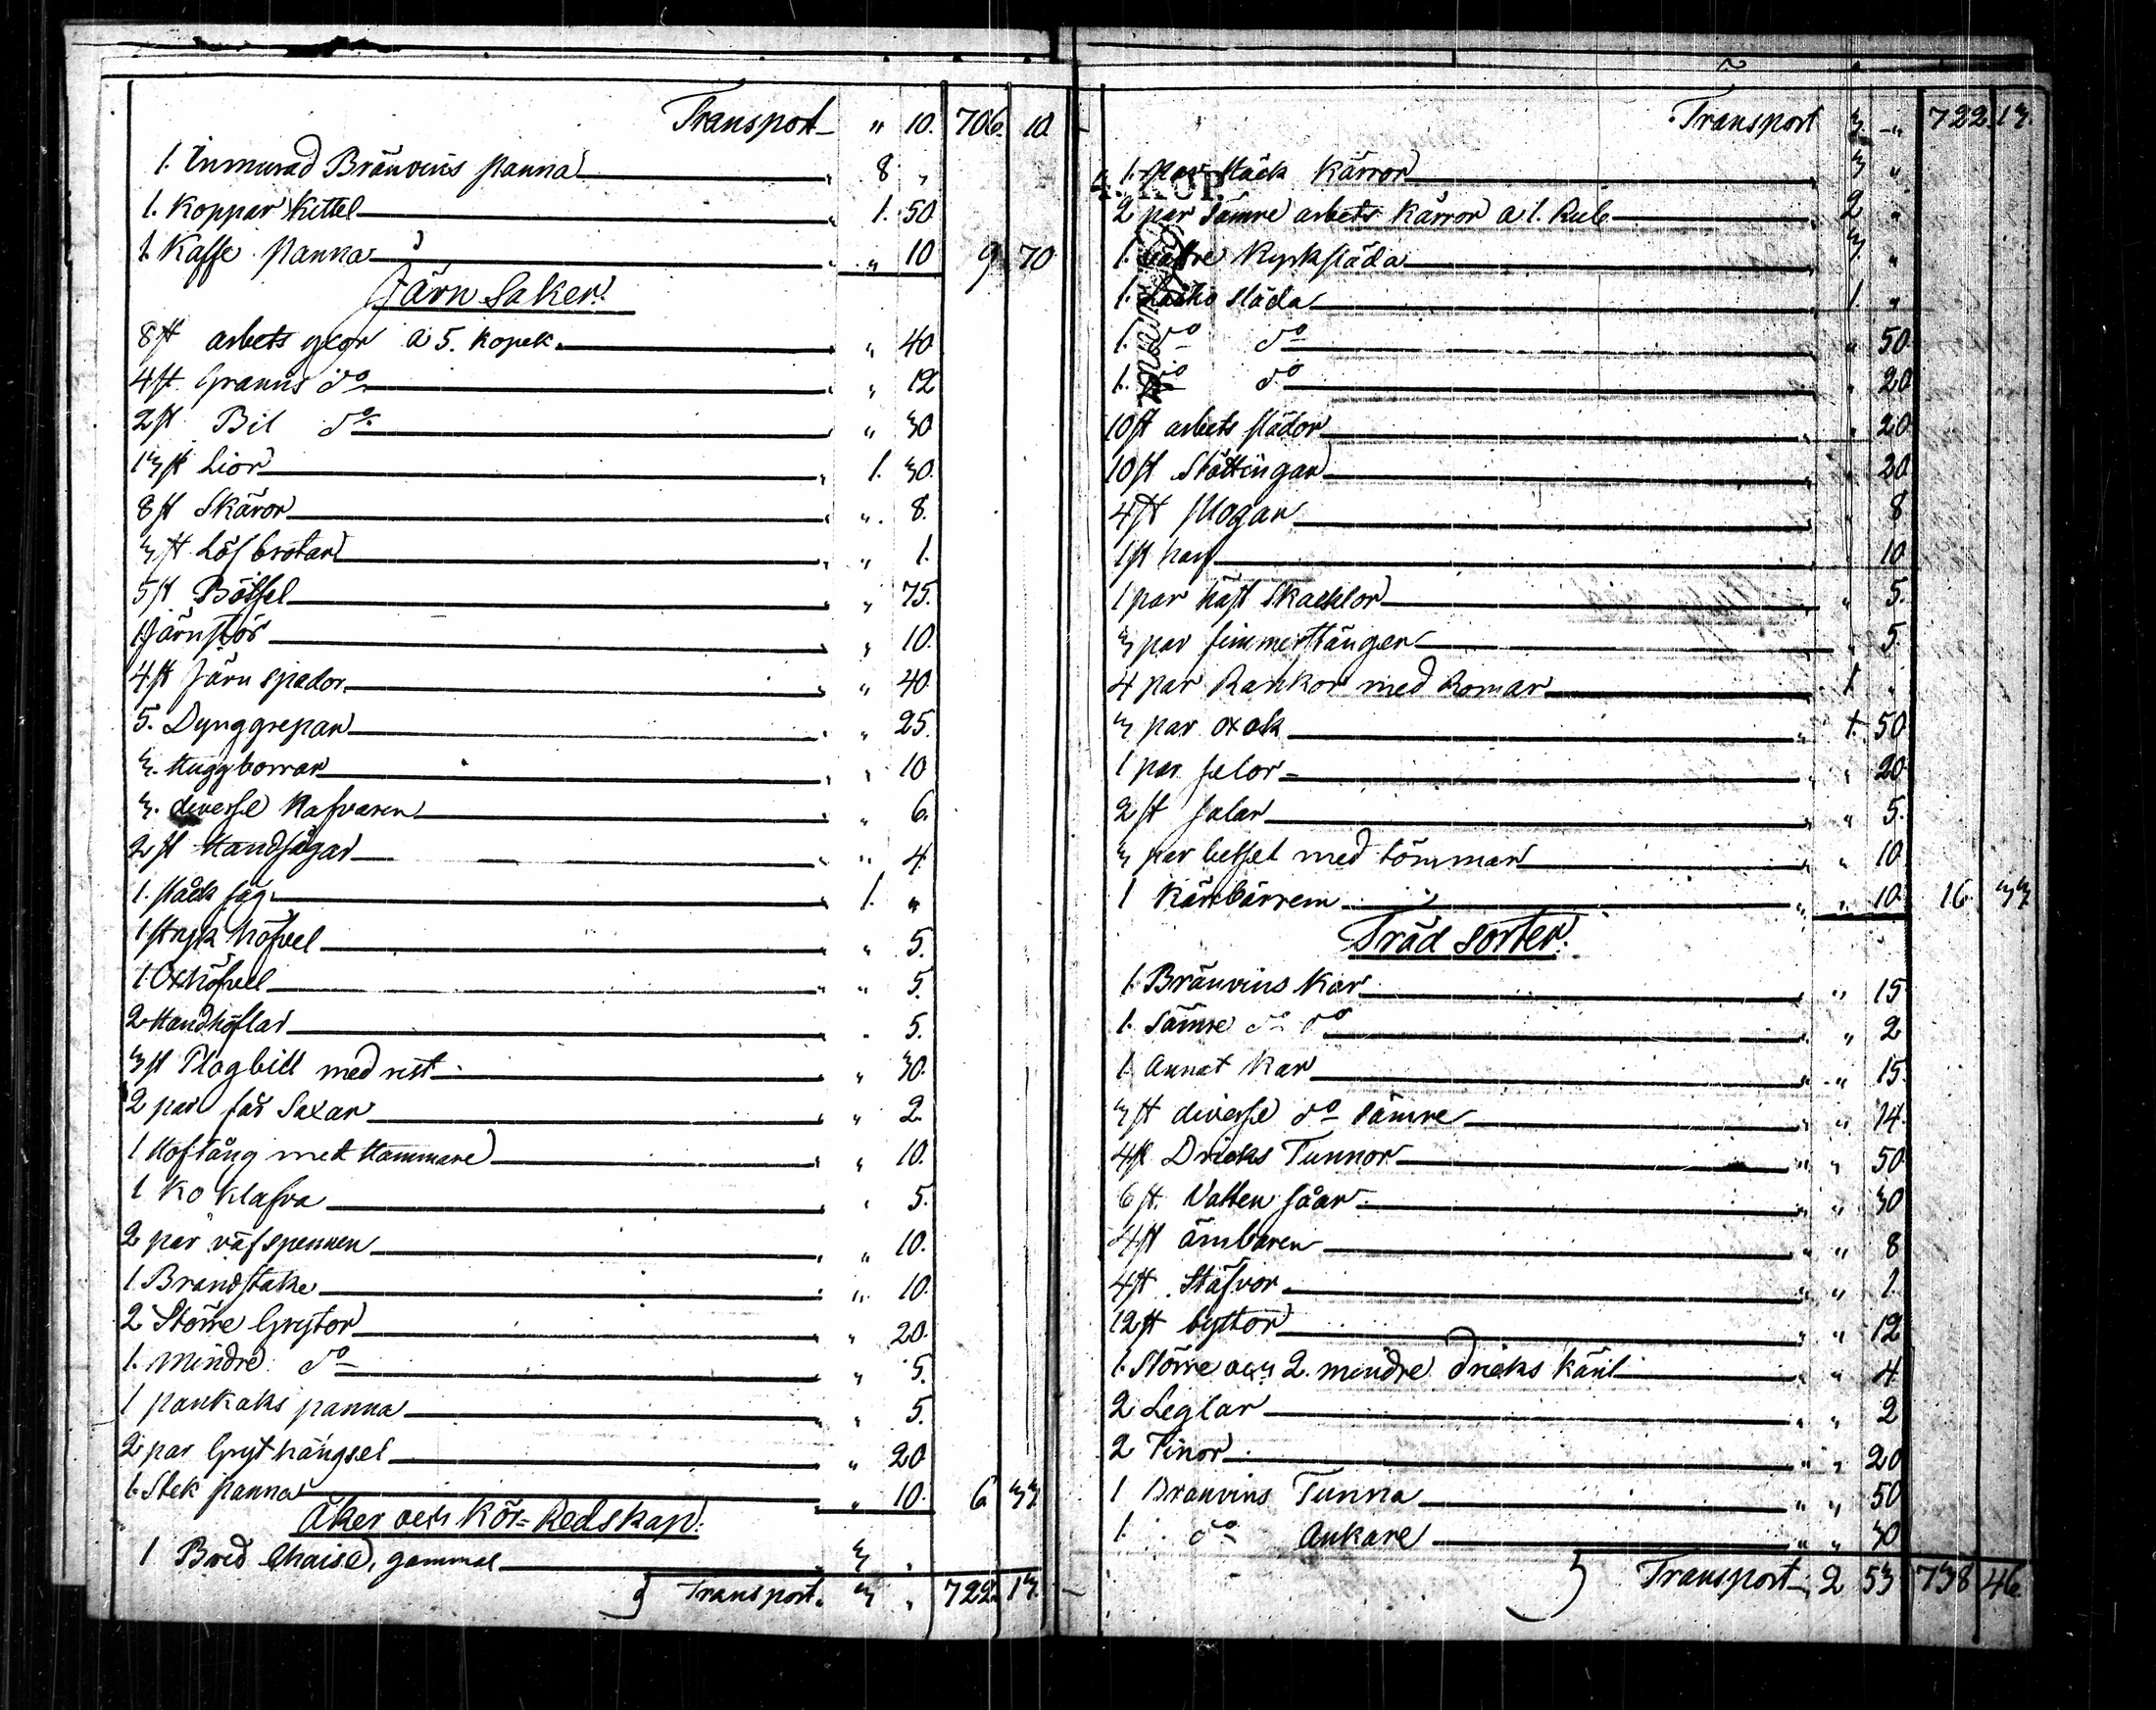 Transport " 10. 706. 10.
1. Inmurad Bränvins panna " 8 "
1. Koppar Kittel " 1. 50
1. Kaffe Panna " " 10 9 70
Järn Saker.
8 st arbets yxor à 5. Kopek. " 40
4 st. Granris do " 12
2 st Bil do " 30
13 st Lior " 1. 30.
8 st Skäror " " 8.
3 st Löfbrotar " " 1.
5 st Bötsel " " 75.
1 Järnstör " " 10.
4 st Järn spador " " 40
5. Dynggrepar " " 25.
3. Huggborrar " " 10
3. diverse Nafvaren " " 6.
2 st Handsågar " " 4
1. Ståck såg " 1. "
1 Stryk höfvel " " 5.
1. Oxhöfvell " " 5.
2 Handhöflar " 5.
3 st Plogbill med rist " 30.
2 par får Saxar " " 2
1 Hoftång med Hammare " " 10.
1 Ko Klafva " " 5.
2 par väfspennen " " 10.
1 Brandstake " " 10.
2 Större Grytor " 20.
1. Mindre do " 5.
1 pankaks panna " " 5.
2 par Gryt hängsel " 20
1. Stek panna " " 10. 6 33
Åker och Kör=Redskap.
1 Bred Chaise, gammal " 3 "
Transport. 3 " 722. 13.
Transport 3. " 722. 13.
4. KOP.
1. par Stäck Kärror " 3 "
2 par Sämre arbets Kärror a 1. Rub. " 2 "
1. Bättre Kyrksläda " 3 "
1. släda " 1. "
1. do do " 50
1. do do " 20
10 st arbets slädor " 20.
10 st Stöttingar " 20
4 st Plogar " 8
1 st harf " 10
1 par häst Skacklor " 5.
3 par fimmerstänger " 5.
4 par Rankor med Romar " 1 "
3 par oxok " 1. 50
1 par Selor " " 20
2 st Salar " " 5.
3 par betsel med tömmar " " 10
1 Kärrbärrem " " 10. 16. 33
Träd sorter.
1. Bränvins Kar " " 15
1. Sämre do do " " 2
1. Annat Kar " " 15.
3 st diverse do sämre " " 14.
4 st Dricks Tunnor " " 50
6 st. Vatten såar " " 30
4 st ämbaren " " 8
4 st. Stäfvor " " 1.
12 st byttor " " 12
1. Större och 2. mindre dricks Käril " " 4
2 Leglar " " 2
2 Tinor " " 20
1 Bränvins Tunna " " 50
1. do Ankare " " 30
Transport 2 53 738 46.